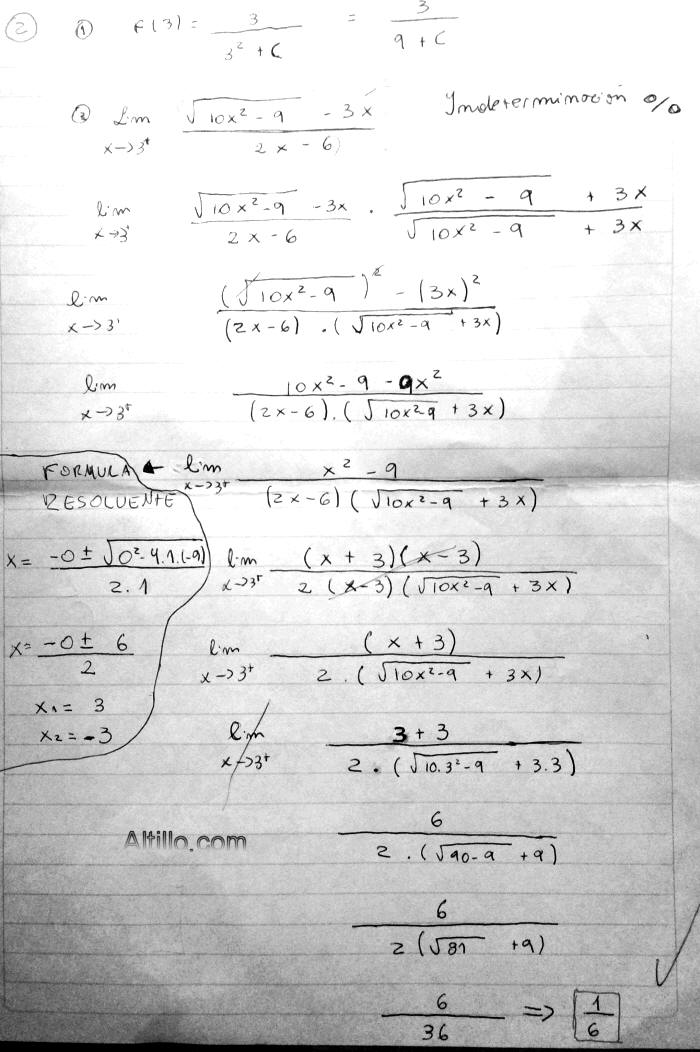 ② ① F(3) = 3/(3² + C) = 3/(9 + C)
② Lim x->3⁺ (√(10x² - 9) - 3x)/(2x - 6) Indeterminación 0/0
lim x->3⁺ (√(10x²-9) - 3x)/(2x - 6) . (√(10x² - 9) + 3x)/(√(10x² - 9) + 3x)
lim x->3⁺ ((√(10x²-9))² - (3x)²)/((2x-6) . (√(10x²-9) + 3x))
lim x->3⁺ (10x² - 9 - 9x²)/((2x-6) . (√(10x²-9) + 3x))
FORMULA RESOLVENTE ← lim x->3⁺ (x² - 9)/((2x-6) (√(10x²-9) + 3x))
x = (-0 ± √(0²-4.1.(-9)))/(2.1) lim x->3⁺ ((x + 3)(x - 3))/(2 (x-3) (√(10x²-9) + 3x))
x = (-0 ± 6)/2 lim x->3⁺ (x + 3)/(2 . (√(10x²-9) + 3x))
x₁ = 3
x₂ = -3 lim x->3⁺ (3 + 3)/(2 . (√(10.3²-9) + 3.3))
Altillo.com 6/(2 . (√(90-9) + 9))
6/(2 (√81 + 9))
6/36 => 1/6